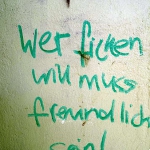 Wer ficken
will muss
freundlich
sein!